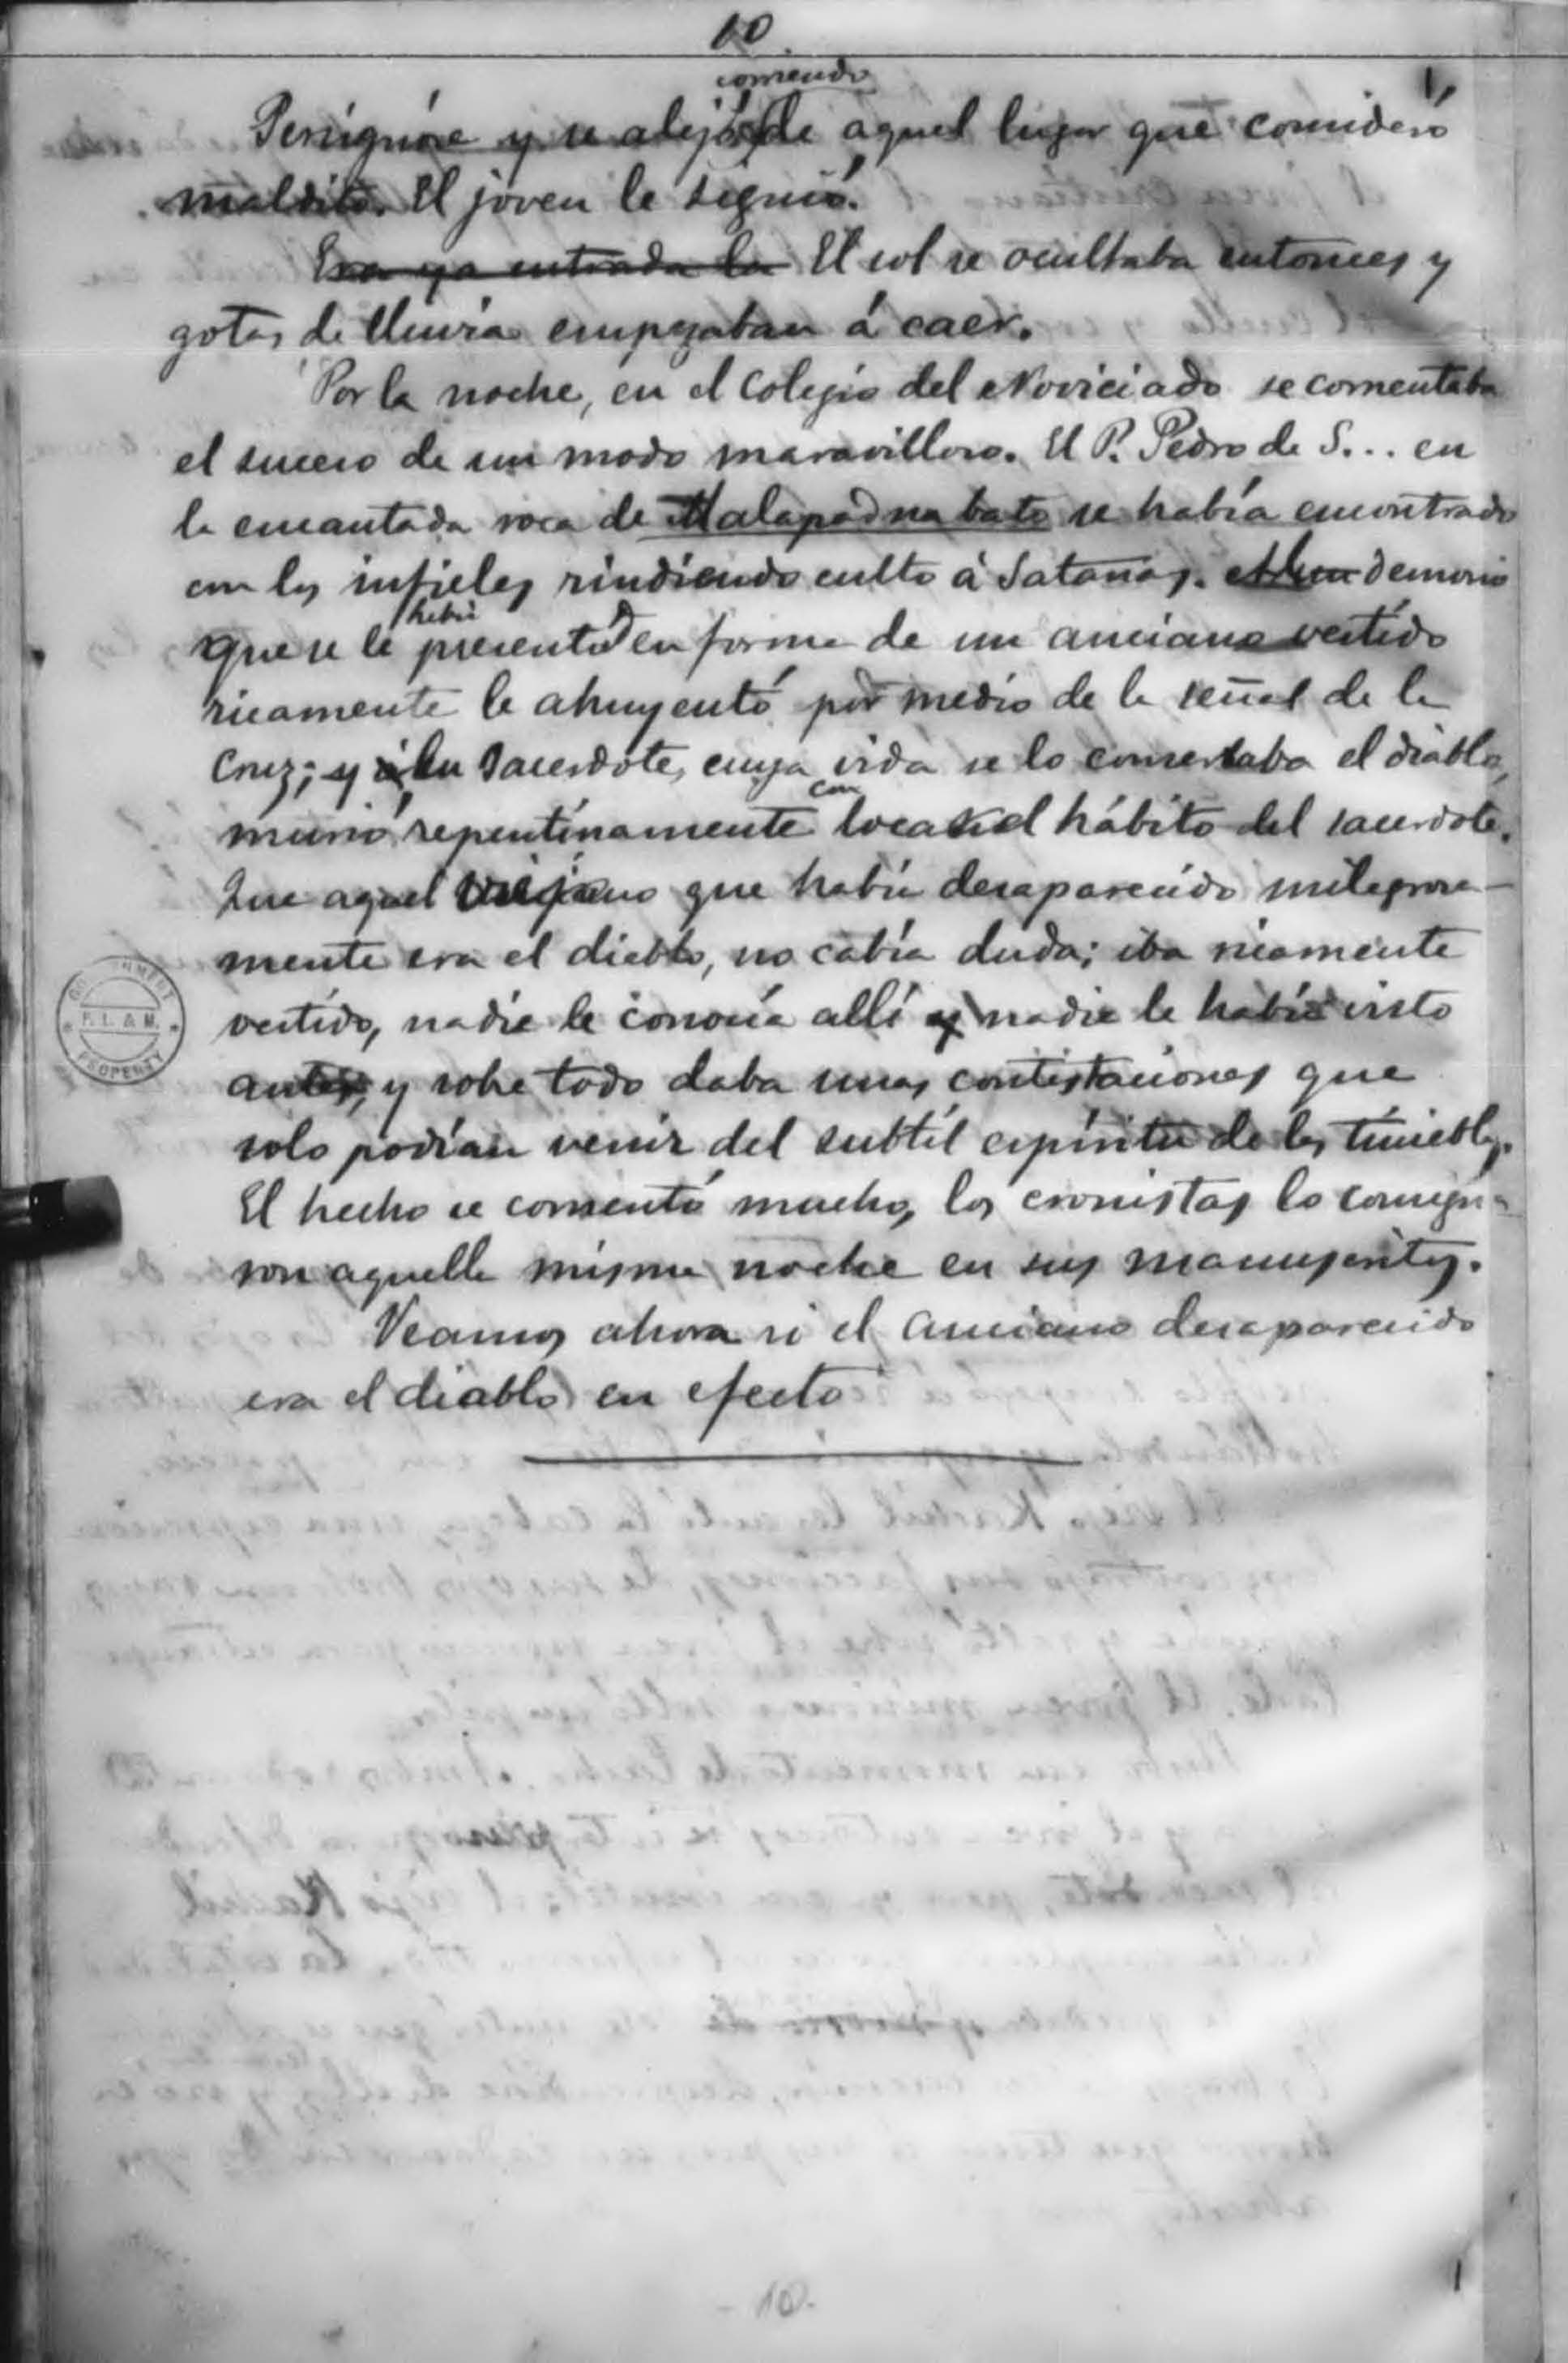 10
corriendo
Persignóse y se alejó de aquel lugar que consideró
maldito. El joven le siguió.
Era ya entrada la El sol se ocultaba entonces y
gotas de lluvia empezaban á caer.
Por la noche, en el Colegio del Noviciado se comentaba
el suceso de un modo maravilloso. El P. Pedro de S... en
la encantada roca de Malapad na bato se había encontrado
con los infieles rindiendo culto á Satanás. demonio
había
que se le presentado en forma de un anciano vestido
ricamente le ahuyentó por medio de la señal de la
Cruz; y su Sacerdote, cuya vida se lo conservaba el diablo,
con
murió repentinamente tocar el hábito del sacerdote.
Que aquel que había desaparecido milagrosa-
mente era el diablo, no cabía duda; iba ricamente
vestido, nadie le conocía allí y nadie le había visto
antes, y sobre todo daba unas contestaciones que
solo podían venir del subtíl espíritu de las tinieblas.
El hecho se comentó mucho, los cronistas lo consigna-
ron aquella misma noche en sus manuscritos.
Veamos ahora si el anciano desaparecido
era el diablo en efecto
GOVERNMENT
P. L. & M.
PROPERTY
10